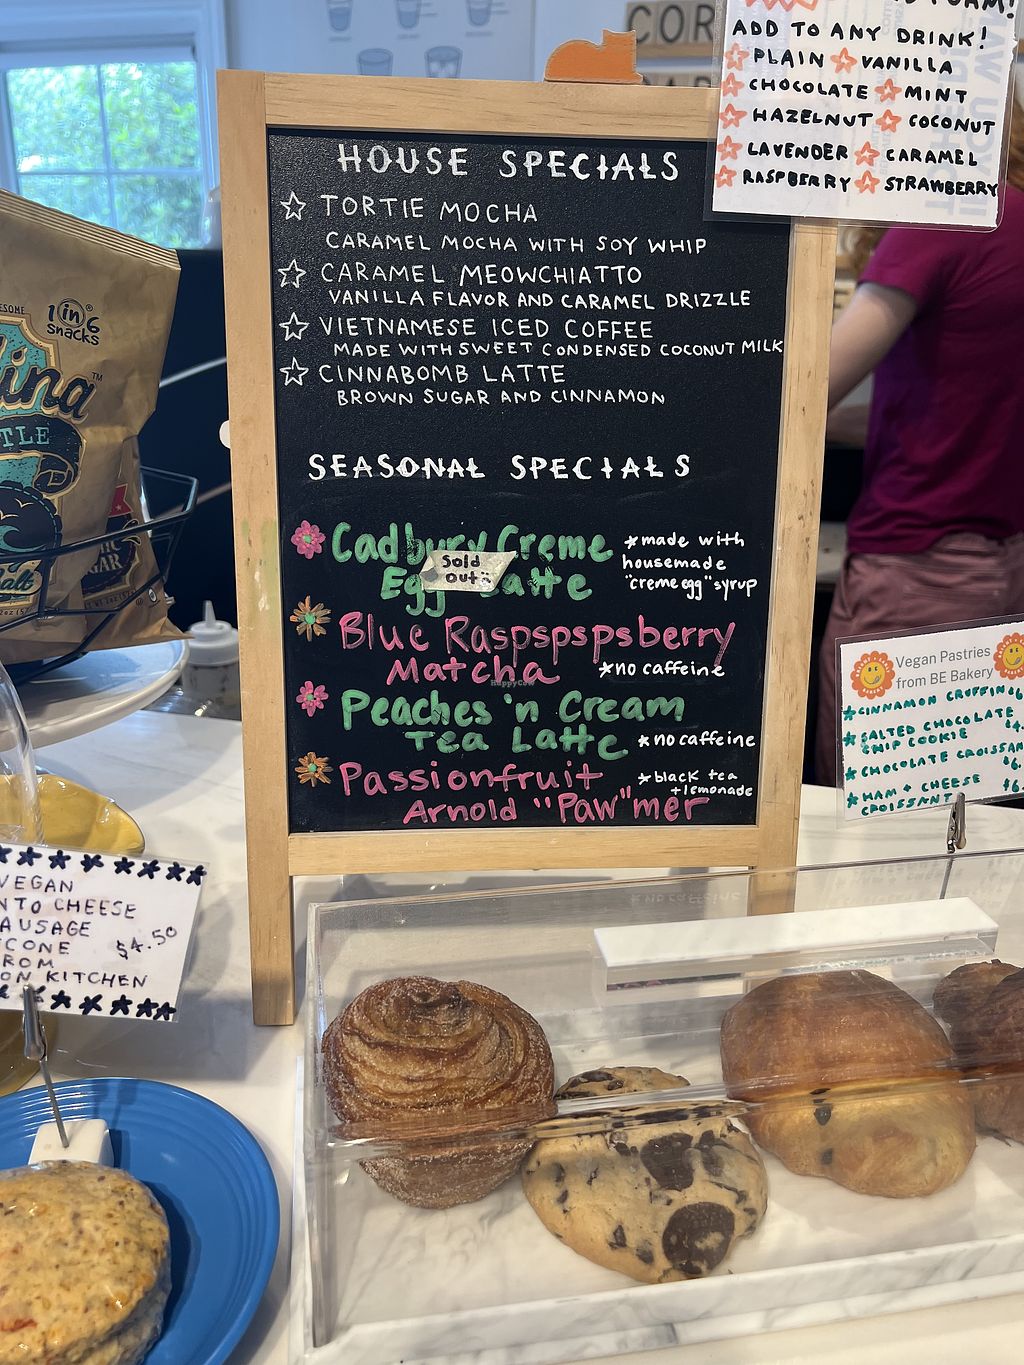 COR
FOAM!
ADD TO ANY DRINK!
PLAIN VANILLA
CHOCOLATE MINT
HAZELNUT COCONUT
LAVENDER CARAMEL
RASPBERRY STRAWBERRY
HOUSE SPECIALS
TORTIE MOCHA
CARAMEL MOCHA WITH SOY WHIP
CARAMEL MEOWCHIATTO
VANILLA FLAVOR AND CARAMEL DRIZZLE
VIETNAMESE ICED COFFEE
MADE WITH SWEET CONDENSED COCONUT MILK
CINNABOMB LATTE
BROWN SUGAR AND CINNAMON
SEASONAL SPECIALS
Cadbury Creme
Egg Latte
Sold
out
*made with
housemade
"creme egg" syrup
Blue Raspspspsberry
Matcha *no caffeine
HappyCow
Peaches 'n Cream
Tea Latte *no caffeine
Passionfruit
Arnold "Paw"mer
*black tea
+lemonade
1 in 6
snacks
lina
TLE
Vegan Pastries
from BE Bakery
CINNAMON CRUFFIN
SALTED CHOCOLATE
CHIP COOKIE
CHOCOLATE CROISSAN
HAM + CHEESE
CROISSANT
VEGAN
NTO CHEESE
AUSAGE
CONE $4.50
ROM
ON KITCHEN